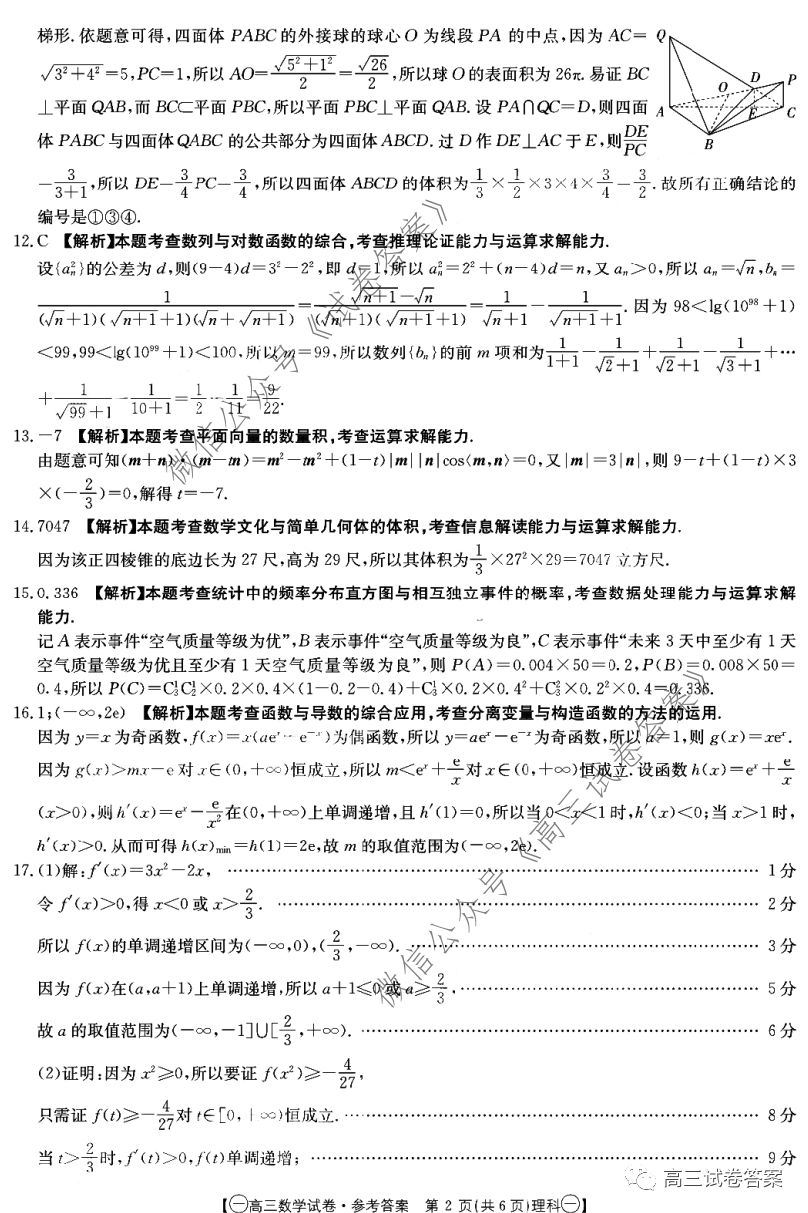 梯形.依题意可得,四面体 PABC 的外接球的球心 O 为线段 PA 的中点,因为 AC=
√(3²+4²)=5,PC=1,所以 AO=√(5²+1²)/2=√26/2,所以球 O 的表面积为 26π.易证 BC
⊥平面 QAB,而 BC⊂平面 PBC,所以平面 PBC⊥平面 QAB.设 PA∩QC=D,则四面
体 PABC 与四面体 QABC 的公共部分为四面体 ABCD.过 D 作 DE⊥AC 于 E,则DE/PC
=3/(3+1),所以 DE=3/4PC=3/4,所以四面体 ABCD 的体积为1/3×1/2×3×4×3/4=3/2.故所有正确结论的
编号是①③④.
Q
D
P
O
A
E
C
B
12.C 【解析】本题考查数列与对数函数的综合,考查推理论证能力与运算求解能力.
设{aₙ²}的公差为 d,则(9-4)d=3²-2²,即 d=1,所以 aₙ²=2²+(n-4)d=n,又 aₙ>0,所以 aₙ=√n,bₙ=
1/((√n+1)(√(n+1)+1)(√n+√(n+1)))=(√(n+1)-√n)/((√n+1)(√(n+1)+1))=1/(√n+1)-1/(√(n+1)+1).因为 98<lg(10⁹⁸+1)
<99,99<lg(10⁹⁹+1)<100,所以 m=99,所以数列{bₙ}的前 m 项和为1/(1+1)-1/(√2+1)+1/(√2+1)-1/(√3+1)+…
+1/(√99+1)-1/(10+1)=1/2-1/11=9/22.
13.-7 【解析】本题考查平面向量的数量积,考查运算求解能力.
由题意可知(m+n)·(m-tn)=m²-tn²+(1-t)|m||n|cos⟨m,n⟩=0,又|m|=3|n|,则 9-t+(1-t)×3
×(-2/3)=0,解得 t=-7.
14.7047 【解析】本题考查数学文化与简单几何体的体积,考查信息解读能力与运算求解能力.
因为该正四棱锥的底边长为 27 尺,高为 29 尺,所以其体积为1/3×27²×29=7047 立方尺.
15.0.336 【解析】本题考查统计中的频率分布直方图与相互独立事件的概率,考查数据处理能力与运算求解
能力.
记 A 表示事件“空气质量等级为优”,B 表示事件“空气质量等级为良”,C 表示事件“未来 3 天中至少有 1 天
空气质量等级为优且至少有 1 天空气质量等级为良”,则 P(A)=0.004×50=0.2,P(B)=0.008×50=
0.4,所以 P(C)=C₃¹C₂¹×0.2×0.4×(1-0.2-0.4)+C₃¹×0.2×0.4²+C₃²×0.2²×0.4=0.336.
16.1;(-∞,2e) 【解析】本题考查函数与导数的综合应用,考查分离变量与构造函数的方法的运用.
因为 y=x 为奇函数,f(x)=x(aeˣ-e⁻ˣ)为偶函数,所以 y=aeˣ-e⁻ˣ为奇函数,所以 a=1,则 g(x)=xeˣ.
因为 g(x)>mx-e 对 x∈(0,+∞)恒成立,所以 m<eˣ+e/x对 x∈(0,+∞)恒成立.设函数 h(x)=eˣ+e/x
(x>0),则 h′(x)=eˣ-e/x²在(0,+∞)上单调递增,且 h′(1)=0,所以当 0<x<1 时,h′(x)<0;当 x>1 时,
h′(x)>0.从而可得 h(x)min=h(1)=2e,故 m 的取值范围为(-∞,2e).
17.(1)解:f′(x)=3x²-2x, …… 1 分
令 f′(x)>0,得 x<0 或 x>2/3. …… 2 分
所以 f(x)的单调递增区间为(-∞,0),(2/3,-∞). …… 3 分
因为 f(x)在(a,a+1)上单调递增,所以 a+1≤0 或 a≥2/3, …… 5 分
故 a 的取值范围为(-∞,-1]∪[2/3,+∞). …… 6 分
(2)证明:因为 x²≥0,所以要证 f(x²)≥-4/27,
只需证 f(t)≥-4/27对 t∈[0,+∞)恒成立. …… 8 分
当 t>2/3时,f′(t)>0,f(t)单调递增; …… 9 分
微信公众号《试卷答案》
微信公众号《高三试卷答案》
高三试卷答案
【㊀高三数学试卷·参考答案 第 2 页(共 6 页)理科㊀】